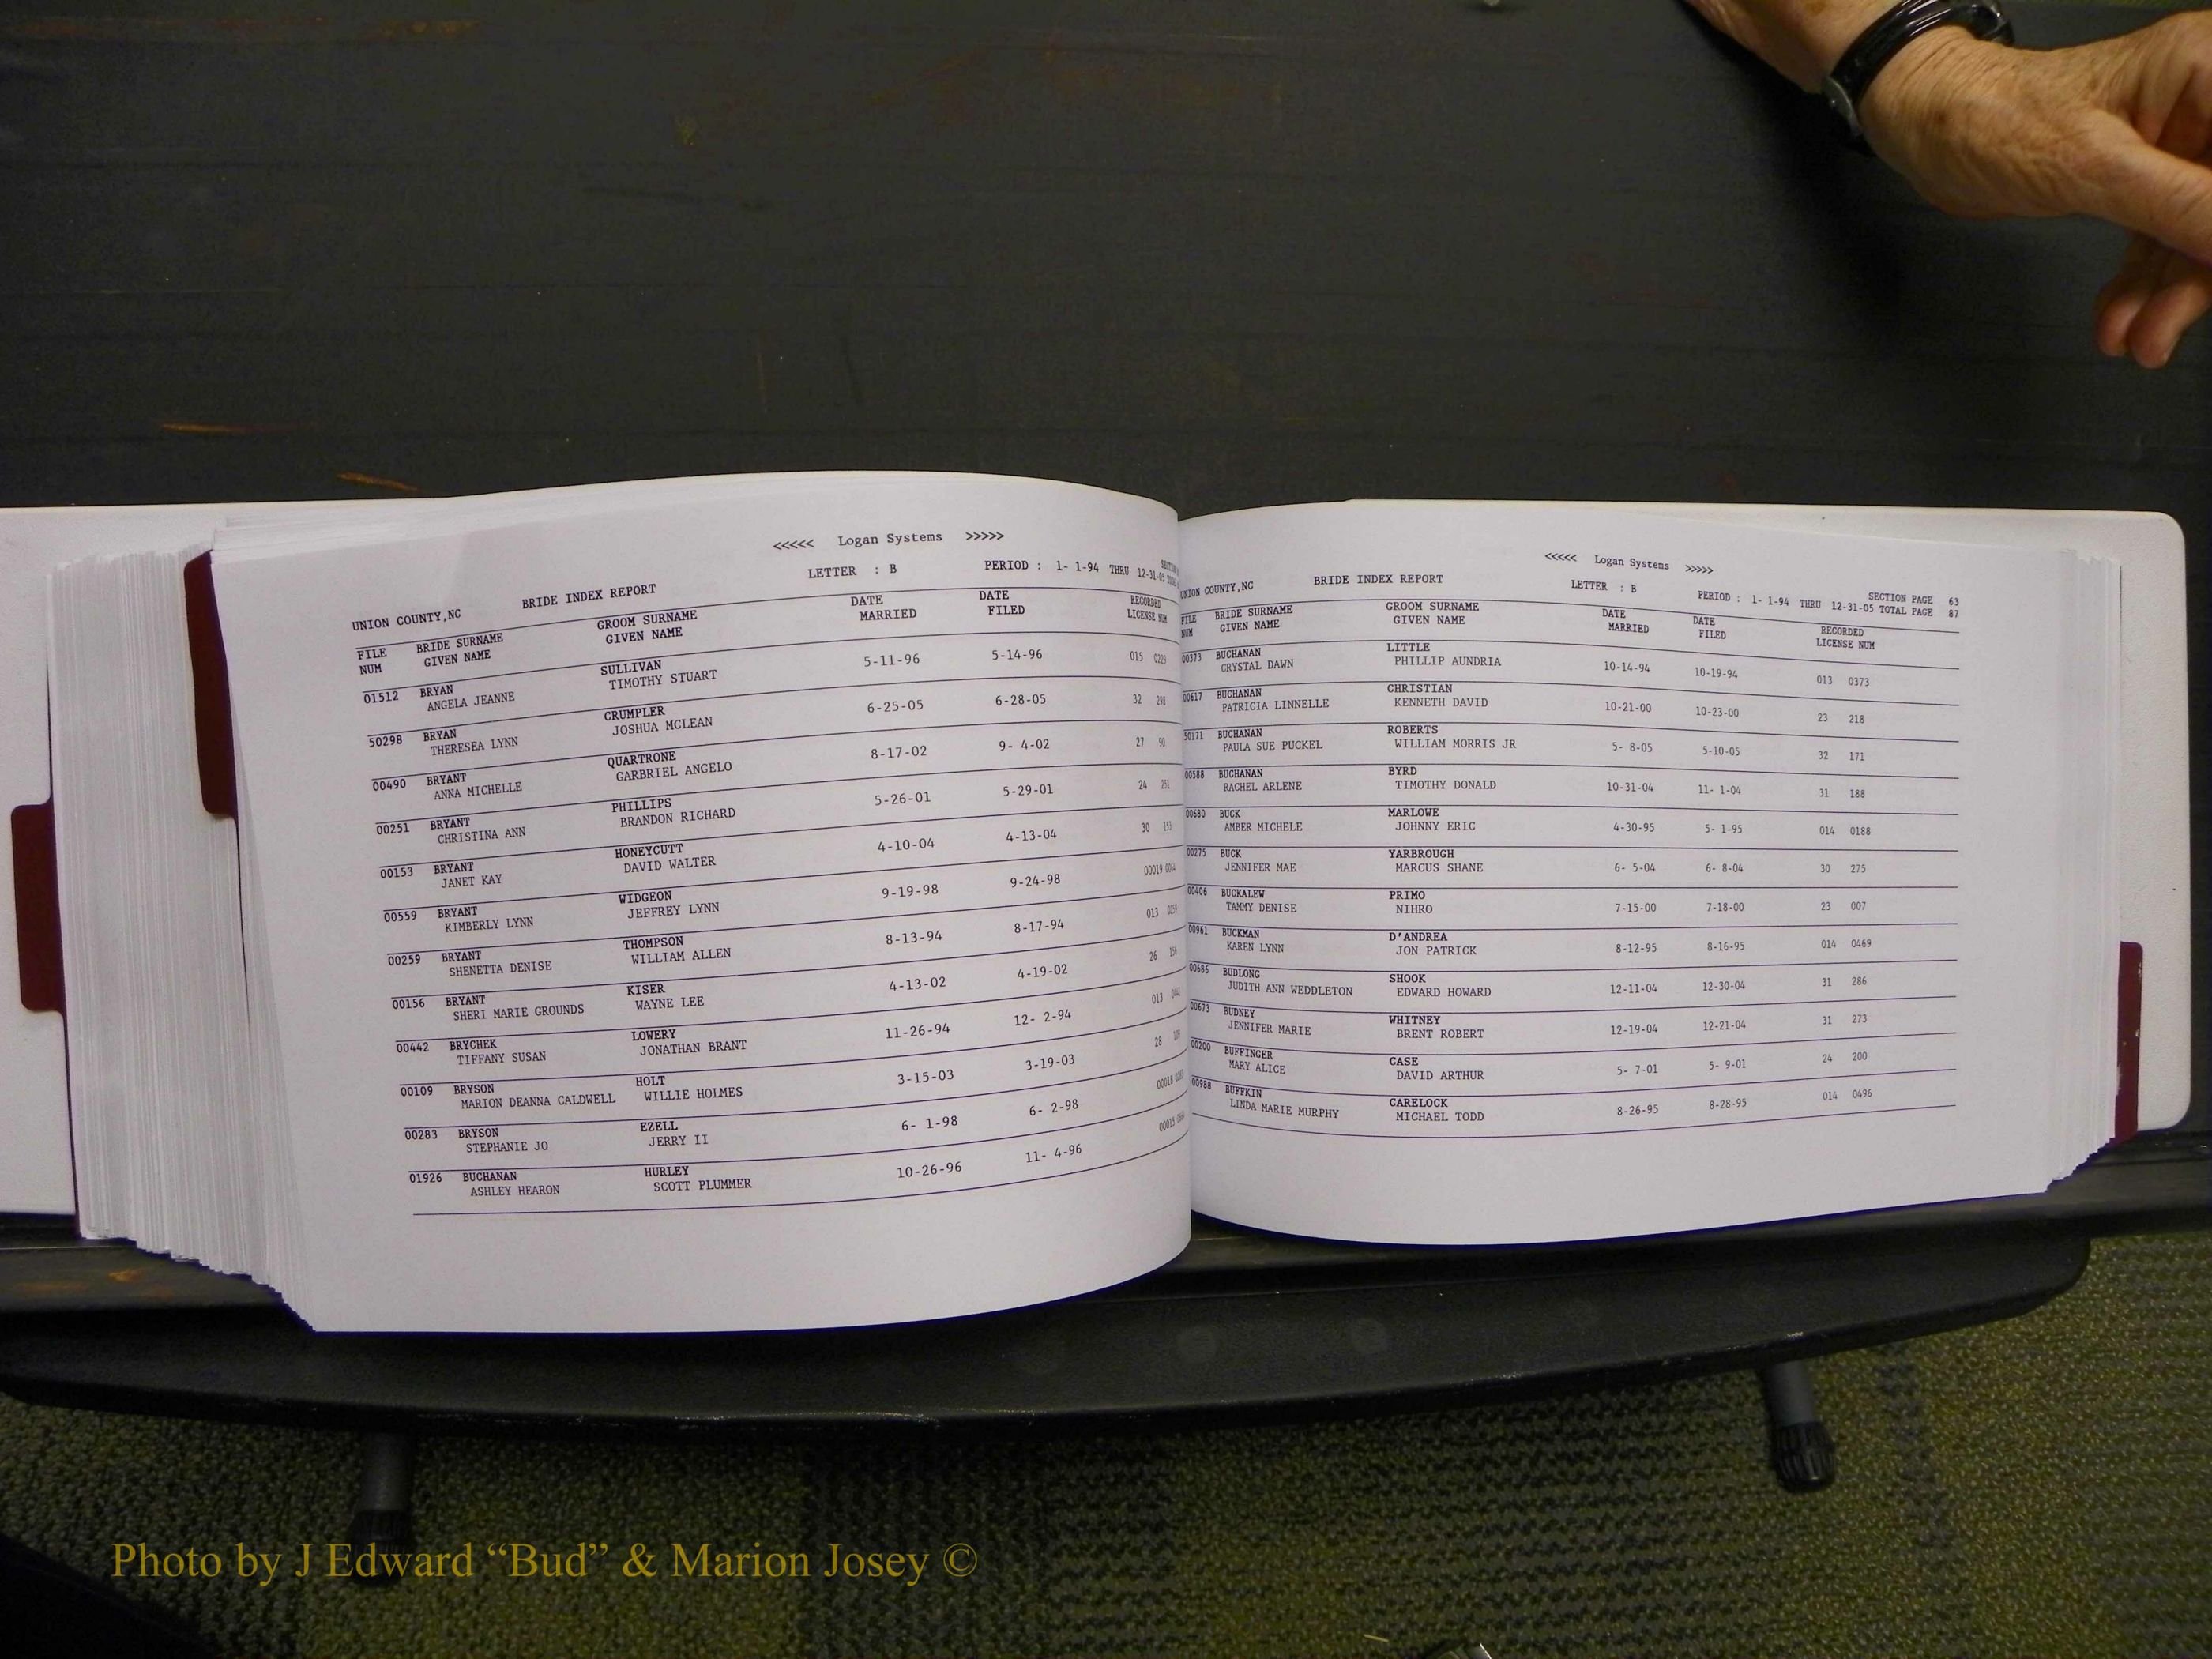 <<<<< Logan Systems >>>>>
UNION COUNTY,NC BRIDE INDEX REPORT LETTER : B PERIOD : 1- 1-94 THRU 12-31-05
FILE BRIDE SURNAME GROOM SURNAME DATE DATE RECORDED
NUM GIVEN NAME GIVEN NAME MARRIED FILED LICENSE NUM
01512 BRYAN SULLIVAN 5-11-96 5-14-96 015 0229
ANGELA JEANNE TIMOTHY STUART
50298 BRYAN CRUMPLER 6-25-05 6-28-05 32 298
THERESEA LYNN JOSHUA MCLEAN
00490 BRYANT QUARTRONE 8-17-02 9- 4-02 27 90
ANNA MICHELLE GARBRIEL ANGELO
00251 BRYANT PHILLIPS 5-26-01 5-29-01 24 251
CHRISTINA ANN BRANDON RICHARD
00153 BRYANT HONEYCUTT 4-10-04 4-13-04 30 153
JANET KAY DAVID WALTER
00559 BRYANT WIDGEON 9-19-98 9-24-98 00019 0064
KIMBERLY LYNN JEFFREY LYNN
00259 BRYANT THOMPSON 8-13-94 8-17-94 013 0259
SHENETTA DENISE WILLIAM ALLEN
00156 BRYANT KISER 4-13-02 4-19-02 26 156
SHERI MARIE GROUNDS WAYNE LEE
00442 BRYCHEK LOWERY 11-26-94 12- 2-94 013 0442
TIFFANY SUSAN JONATHAN BRANT
00109 BRYSON HOLT 3-15-03 3-19-03 28 109
MARION DEANNA CALDWELL WILLIE HOLMES
00283 BRYSON EZELL 6- 1-98 6- 2-98 00018
STEPHANIE JO JERRY II
01926 BUCHANAN HURLEY 10-26-96 11- 4-96 00015
ASHLEY HEARON SCOTT PLUMMER
<<<<< Logan Systems >>>>>
UNION COUNTY,NC BRIDE INDEX REPORT LETTER : B PERIOD : 1- 1-94 THRU 12-31-05 SECTION PAGE 63
TOTAL PAGE 87
FILE BRIDE SURNAME GROOM SURNAME DATE DATE RECORDED
NUM GIVEN NAME GIVEN NAME MARRIED FILED LICENSE NUM
00373 BUCHANAN LITTLE 10-14-94 10-19-94 013 0373
CRYSTAL DAWN PHILLIP AUNDRIA
00617 BUCHANAN CHRISTIAN 10-21-00 10-23-00 23 218
PATRICIA LINNELLE KENNETH DAVID
50171 BUCHANAN ROBERTS 5- 8-05 5-10-05 32 171
PAULA SUE PUCKEL WILLIAM MORRIS JR
00588 BUCHANAN BYRD 10-31-04 11- 1-04 31 188
RACHEL ARLENE TIMOTHY DONALD
00680 BUCK MARLOWE 4-30-95 5- 1-95 014 0188
AMBER MICHELE JOHNNY ERIC
00275 BUCK YARBROUGH 6- 5-04 6- 8-04 30 275
JENNIFER MAE MARCUS SHANE
00406 BUCKALEW PRIMO 7-15-00 7-18-00 23 007
TAMMY DENISE NIHRO
00961 BUCKMAN D'ANDREA 8-12-95 8-16-95 014 0469
KAREN LYNN JON PATRICK
00686 BUDLONG SHOOK 12-11-04 12-30-04 31 286
JUDITH ANN WEDDLETON EDWARD HOWARD
00673 BUDNEY WHITNEY 12-19-04 12-21-04 31 273
JENNIFER MARIE BRENT ROBERT
00200 BUFFINGER CASE 5- 7-01 5- 9-01 24 200
MARY ALICE DAVID ARTHUR
00988 BUFFKIN CARELOCK 8-26-95 8-28-95 014 0496
LINDA MARIE MURPHY MICHAEL TODD
Photo by J Edward “Bud” & Marion Josey ©